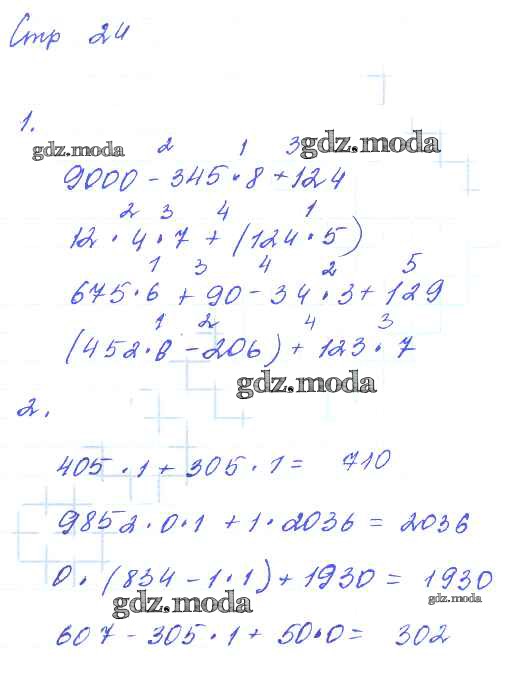 Стр 24
1.
gdz.moda 2 1 3 gdz.moda
9000 - 345 · 8 + 124
2 3 4 1
12 · 4 · 7 + (124 · 5)
1 3 4 2 5
675 · 6 + 90 - 34 · 3 + 129
1 2 4 3
(452 · 8 - 206) + 123 · 7
gdz.moda
2.
405 · 1 + 305 · 1 = 710
9852 · 0 · 1 + 1 · 2036 = 2036
0 · (834 - 1 · 1) + 1930 = 1930
gdz.moda gdz.moda
607 - 305 · 1 + 50 · 0 = 302